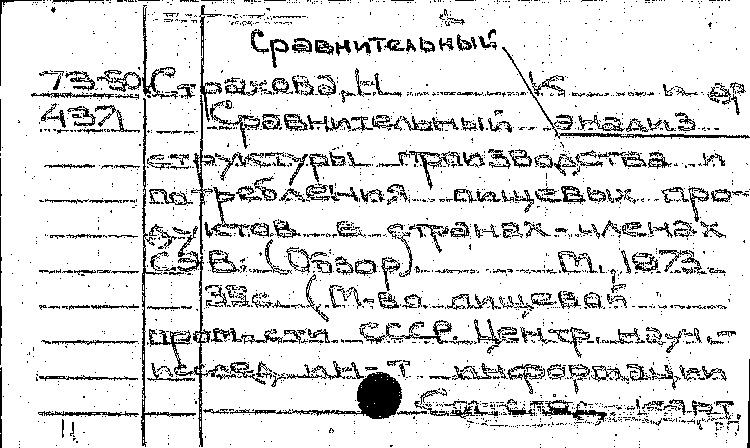 Сравнительный
73-80 Страхова, Н. К. и др
437 Сравнительный анализ
структуры производства и
потребления пищевых про-
дуктов в странах-членах
СЭВ. (Обзор). М., 1973.
38с. (М-во пищевой
пром-сти СССР. Центр. науч.-
исслед. ин-т информации
См. след. карт.